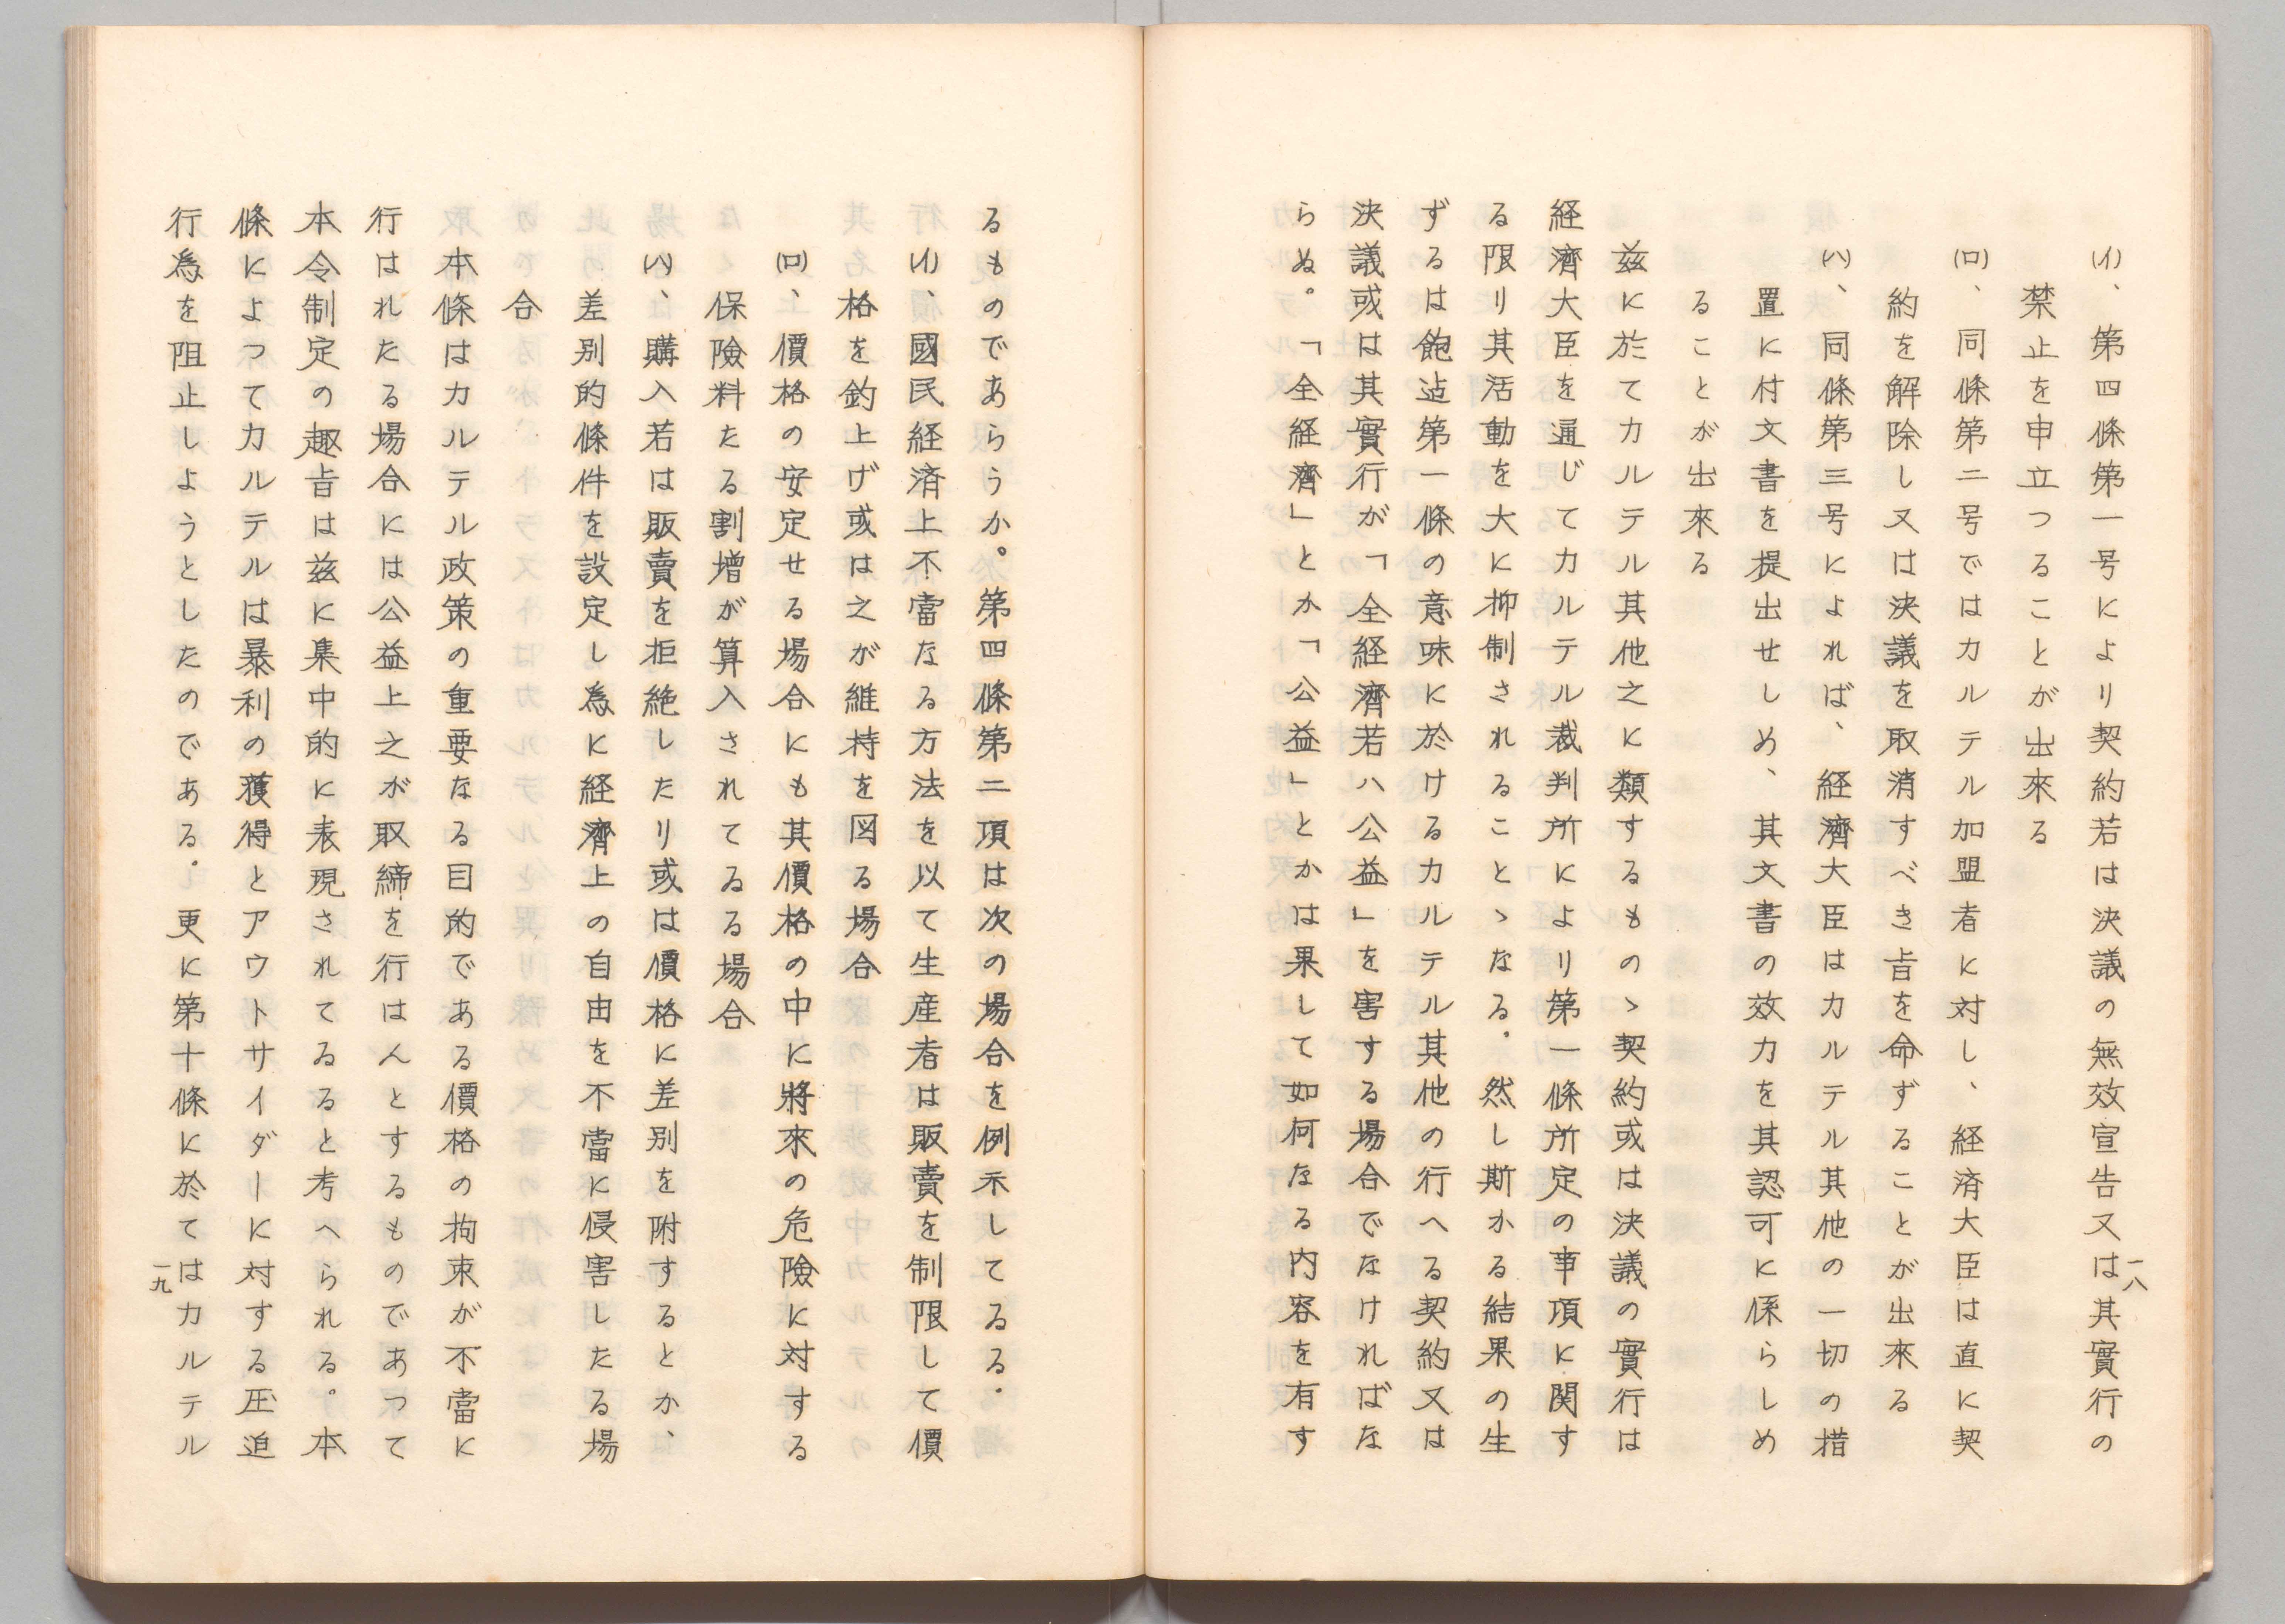 (イ)、第四條第一号により契約若は決議の無效宣告又は其實行の
禁止を申立つることが出來る
(ロ)、同條第二号ではカルテル加盟者に対し、経済大臣は直に契
約を解除し又は決議を取消すべき旨を命ずることが出來る
(ハ)、同條第三号によれば、経濟大臣はカルテル其他の一切の措
置に付文書を提出せしめ、其文書の效力を其認可に係らしめ
ることが出來る
茲に於てカルテル其他之に類するものゝ契約或は決議の實行は
経濟大臣を通じてカルテル裁判所により第一條所定の事項に関す
る限り其活動を大に抑制されることゝなる。然し斯かる結果の生
ずるは飽迠第一條の意味に於けるカルテル其他の行へる契約又は
決議或は其實行が「全経濟若ハ公益」を害する場合でなければな
らぬ。「全経濟」とか「公益」とかは果して如何なる内容を有す
一八
るものであらうか。第四條第二項は次の場合を例示してゐる。
(イ)、國民経済上不當なる方法を以て生産者は販賣を制限して價
格を釣上げ或は之が維持を図る場合
(ロ)、價格の安定せる場合にも其價格の中に將來の危險に対する
保險料たる割増が算入されてゐる場合
(ハ)、購入若は販賣を拒絶したり或は價格に差別を附するとか、
差別的條件を設定し為に経濟上の自由を不當に侵害したる場
合
本條はカルテル政策の重要なる目的である價格の拘束が不當に
行はれたる場合には公益上之が取締を行はんとするものであつて
本令制定の趣旨は茲に集中的に表現されてゐると考へられる。本
條によつてカルテルは暴利の獲得とアウトサイダーに対する圧迫
行為を阻止しようとしたのである。更に第十條に於てはカルテル
一九